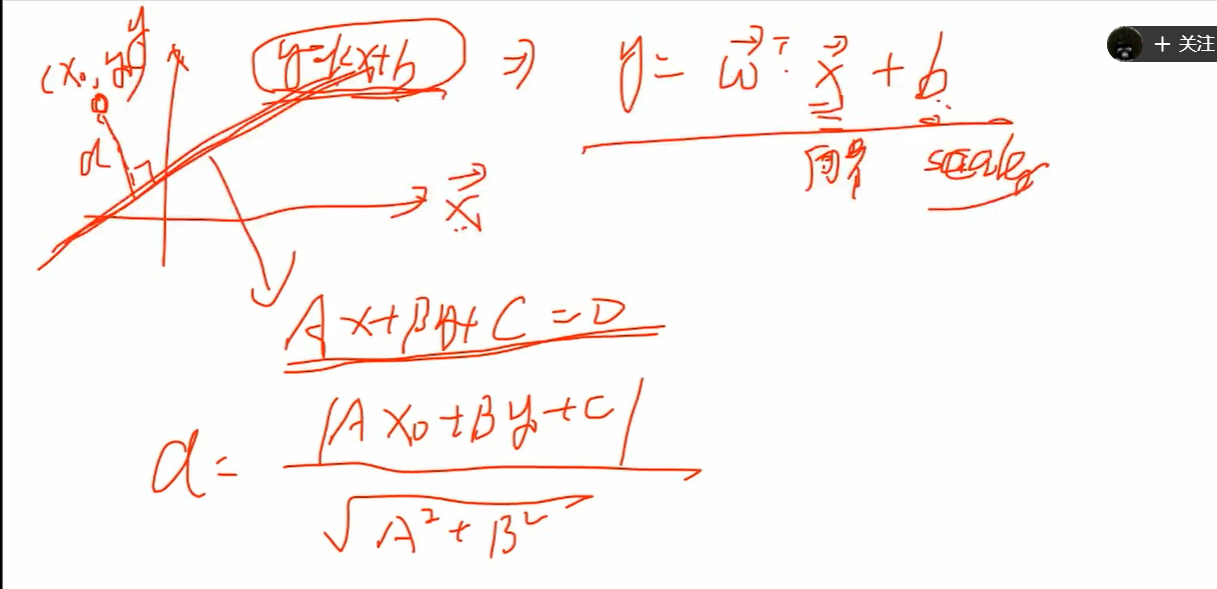 (x₀, y₀) y
y=kx+b ⇒ y = w⃗ᵀ · x⃗ + b
+ 关注
d
向量 scaler
x⃗
Ax+By+C=0
d = |Ax₀+By₀+C| / √(A²+B²)